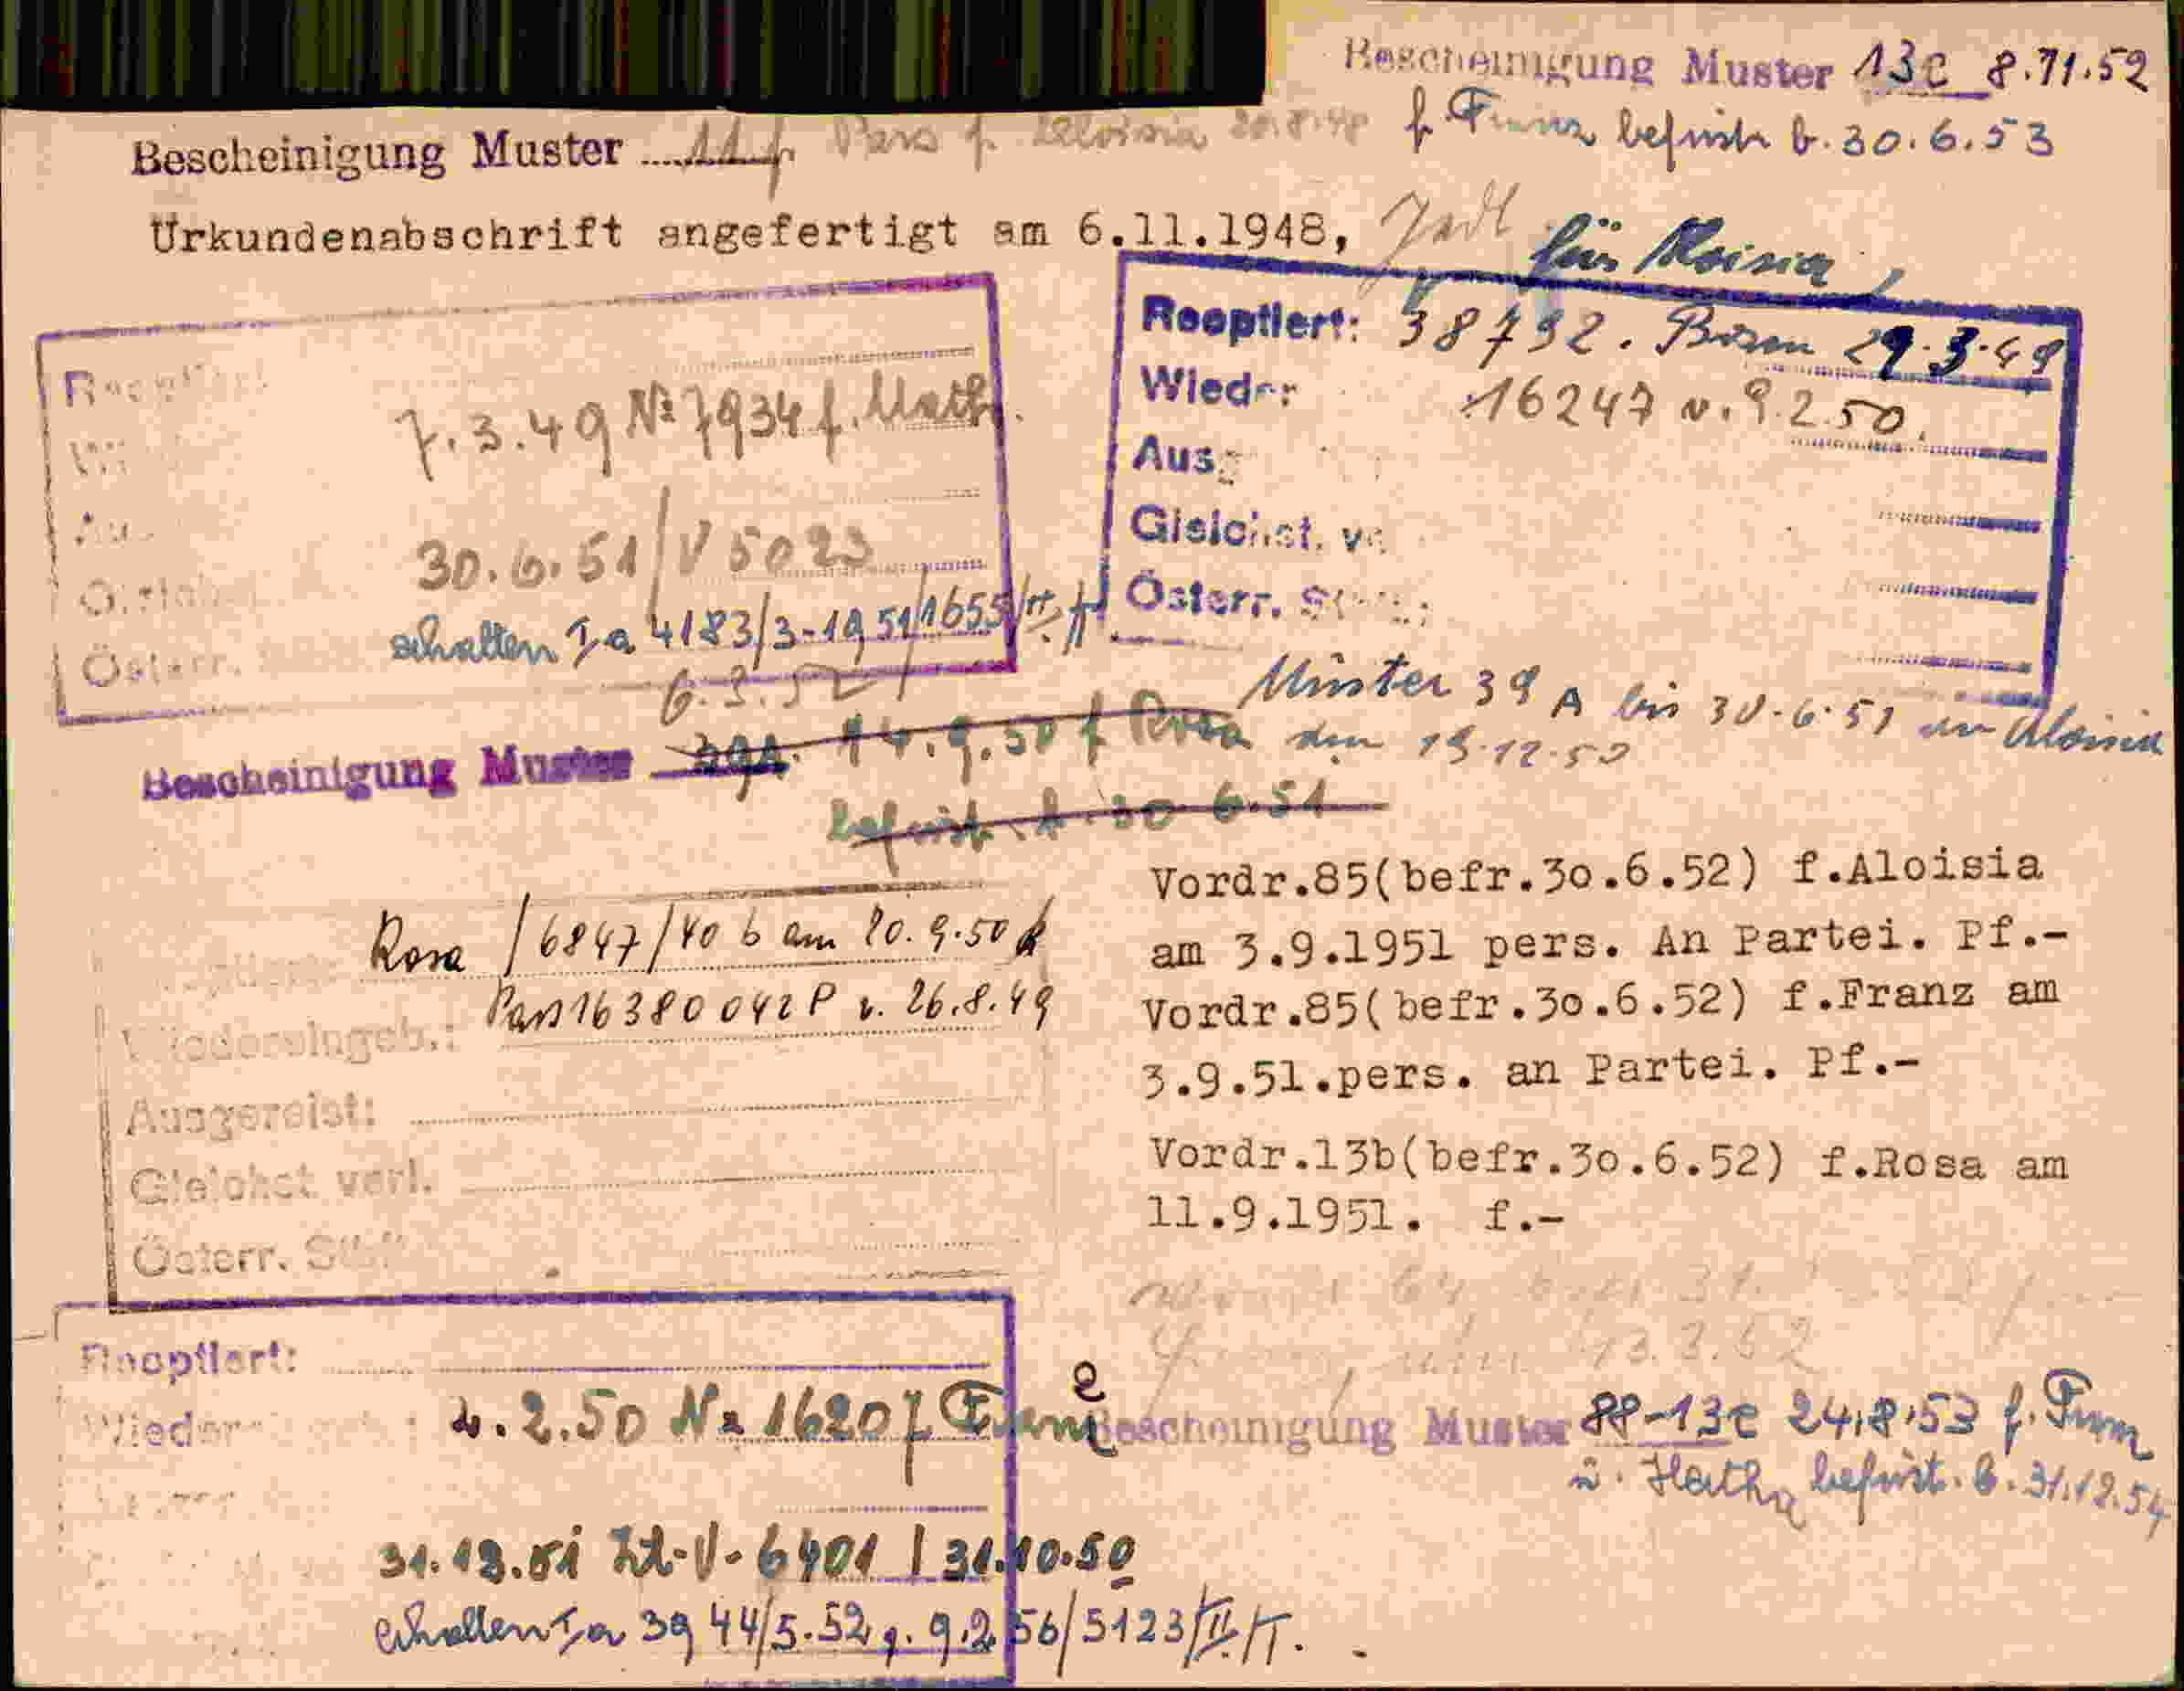 Bescheinigung Muster 13c 8.11.52
f. Franz befrist. b. 30.6.53
Bescheinigung Muster 11 f. Pass f. Aloisia 20.8.48
Urkundenabschrift angefertigt am 6.11.1948,
für Aloisia,
Reoptiert: 38792. Bozen 29.3.49
Wieder: 16247 v. 9.2.50.
Ausg
Gleichst. ve
Österr. St
7.3.49 № 7934 f. Math.
30.6.51/V 5023
erhalten I.a 4183/3-1951/1655/II.
6.3.52
Österr.
Muster 39 A bis 30.6.51 an Aloisia
den 19.12.50
Bescheinigung Muster 39A. 14.9.50 f Rosa
befrist. b. 30 6.51
Rosa /6847/40 b am 20.9.50
Pass 16380 042 P v. 26.8.49
Wiedereingeb.:
Ausgereist:
Gleichst verl.
Österr. St
Vordr.85(befr.30.6.52) f.Aloisia
am 3.9.1951 pers. An Partei. Pf.-
Vordr.85(befr.30.6.52) f.Franz am
3.9.51.pers. an Partei. Pf.-
Vordr.13b(befr.30.6.52) f.Rosa am
11.9.1951. f.-
13.3.52
Reoptiert:
Wieder 2.50 № 16207
31.12.51 V. 6401 / 31.10.50
erhalten I.a 3944/5.52 9.2.56/5123/II/
Bescheinigung Muster 88-13c 24.8.53 f. Franz
u. Math befrist. b. 31.12.54